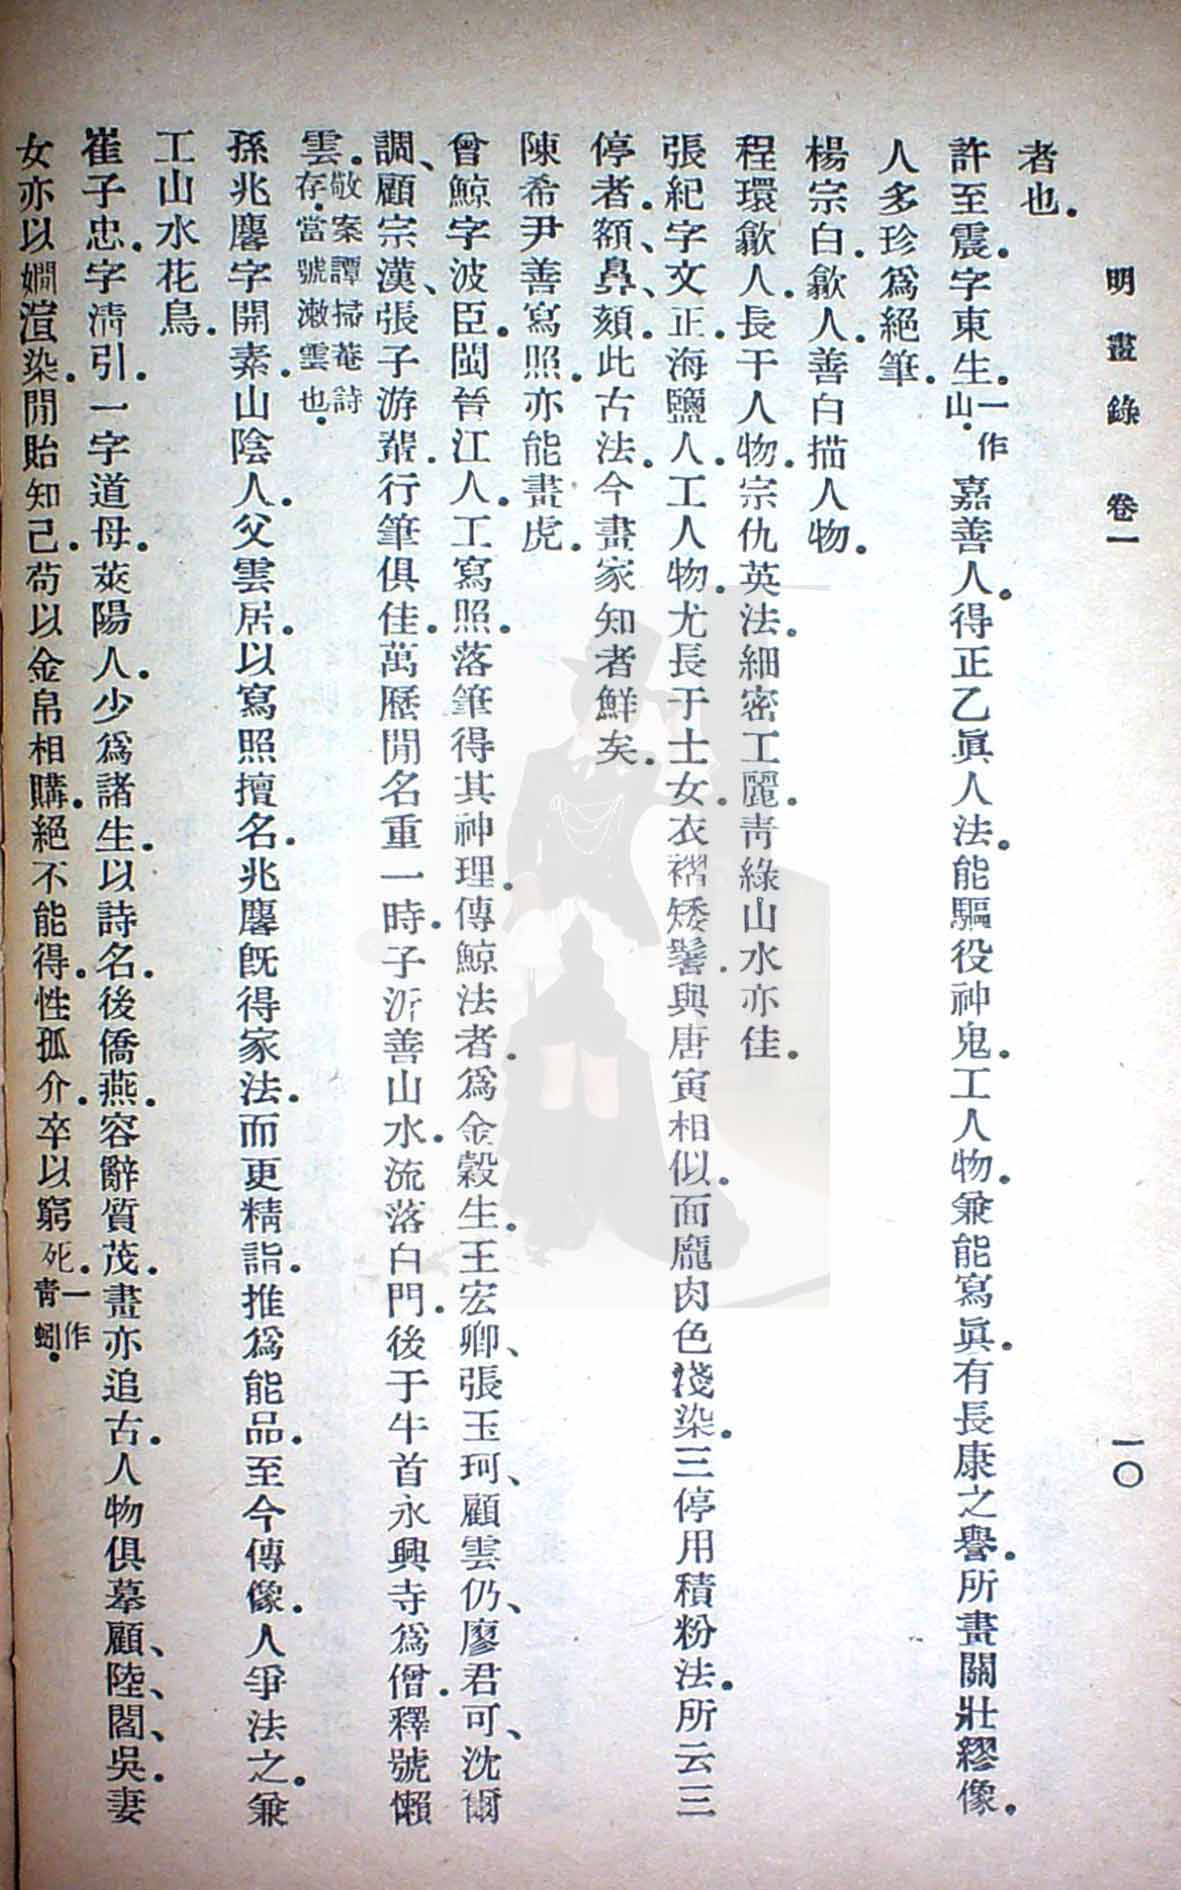 明畫錄　卷一　一〇
者也。
許至震。字東生。一作山。嘉善人。得正乙眞人法。能驅役神鬼。工人物。兼能寫眞。有長康之譽。所畫關壯繆像。
人多珍爲絕筆。
楊宗白。歙人。善白描人物。
程環歙人。長于人物。宗仇英法。細密工麗。靑綠山水亦佳。
張紀字文正。海鹽人。工人物。尤長于士女。衣褶矮鬢。與唐寅相似。面龐肉色淺染。三停用積粉法。所云三
停者。額、鼻、頦。此古法。今畫家知者鮮矣。
陳希尹善寫照。亦能畫虎。
曾鯨字波臣。閩晉江人。工寫照。落筆得其神理。傳鯨法者。爲金穀生。王宏卿、張玉珂、顧雲仍、廖君可、沈爾
調、顧宗漢、張子游輩。行筆俱佳。萬歷閒名重一時。子沂善山水。流落白門。後于牛首永興寺爲僧。釋號懶
雲。敬案譚掃菴詩存。當號漱雲也。
孫兆麐字開素。山陰人。父雲居。以寫照擅名。兆麐旣得家法。而更精詣。推爲能品。至今傳像。人爭法之。兼
工山水花鳥。
崔子忠。字淸引。一字道母。萊陽人。少爲諸生。以詩名。後僑燕。容辭質茂。畫亦追古。人物俱摹顧、陸、閻、吳。妻
女亦以嫺渲染。閒貽知己。苟以金帛相購。絕不能得。性孤介。卒以窮死。一作靑蚓。